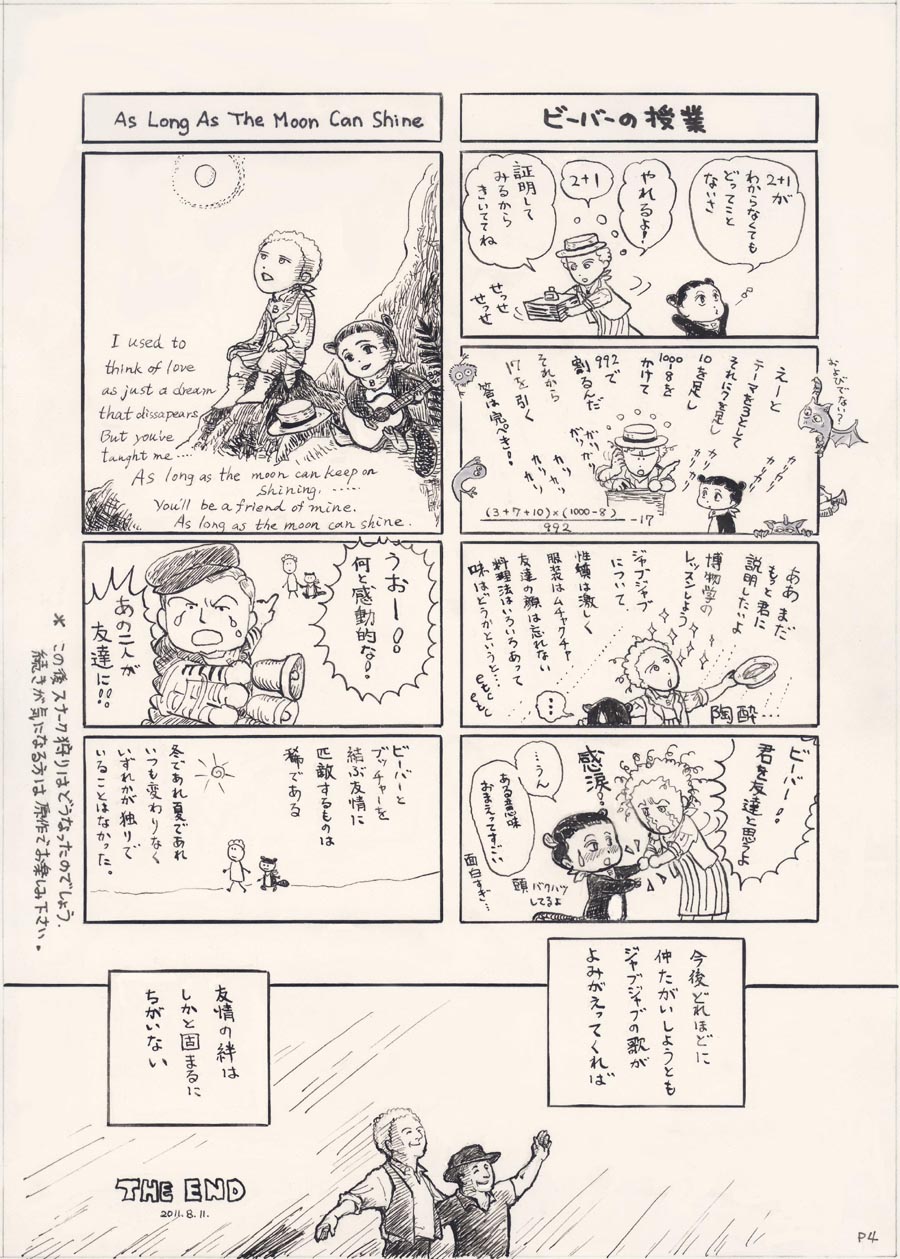 ビーバーの授業
2+1が
わからなくても
どってこと
ないさ
やれるよ!
2+1
証明して
みるから
きいててね
せっせ
せっせ
えーと
テーマを3として
それに7を足し
10を足し
1000-8を
かけて
992で
割るんだ
それから
17を引く
答は完ぺき!!
カリカリ
カリカリ
ガリガリ
カリカリ
カリカリ
およびでない?
(3+7+10)×(1000-8)
992
-17
ああ まだ
もっと君に
説明したいよ
博物学の
レッスンしよう
ジャブジャブ
について
性癖は激しく
服装はムチャクチャ
友達の顔は忘れない
料理法はいろいろあって
味はどうかというと…
陶酔…
…
ビーバー!!
君を友達と思うよ
感涙。
…うん
ある意味
おまえってすごい…
面白すぎ…
頭バクハツ
してるよ
As Long As The Moon Can Shine
I used to
think of love
as just a dream
that dissapears
But you've
taught me ....
As long as the moon can keep on
shining. .....
You'll be a friend of mine.
As long as the moon can shine.
うおー!!
何と感動的な!
あの二人が
友達に!!
ビーバーと
ブッチャーを
結ぶ友情に
匹敵するものは
稀である
冬であれ夏であれ
いつも変わりなく
いずれかが独りで
いることはなかった。
※ この後スナーク狩りはどうなったのでしょう.
続きが気になる方は原作でお楽しみ下さい。
今後どれほどに
仲たがいしようとも
ジャブジャブの歌が
よみがえってくれば
友情の絆は
しかと固まるに
ちがいない
THE END
2011.8.11.
P4